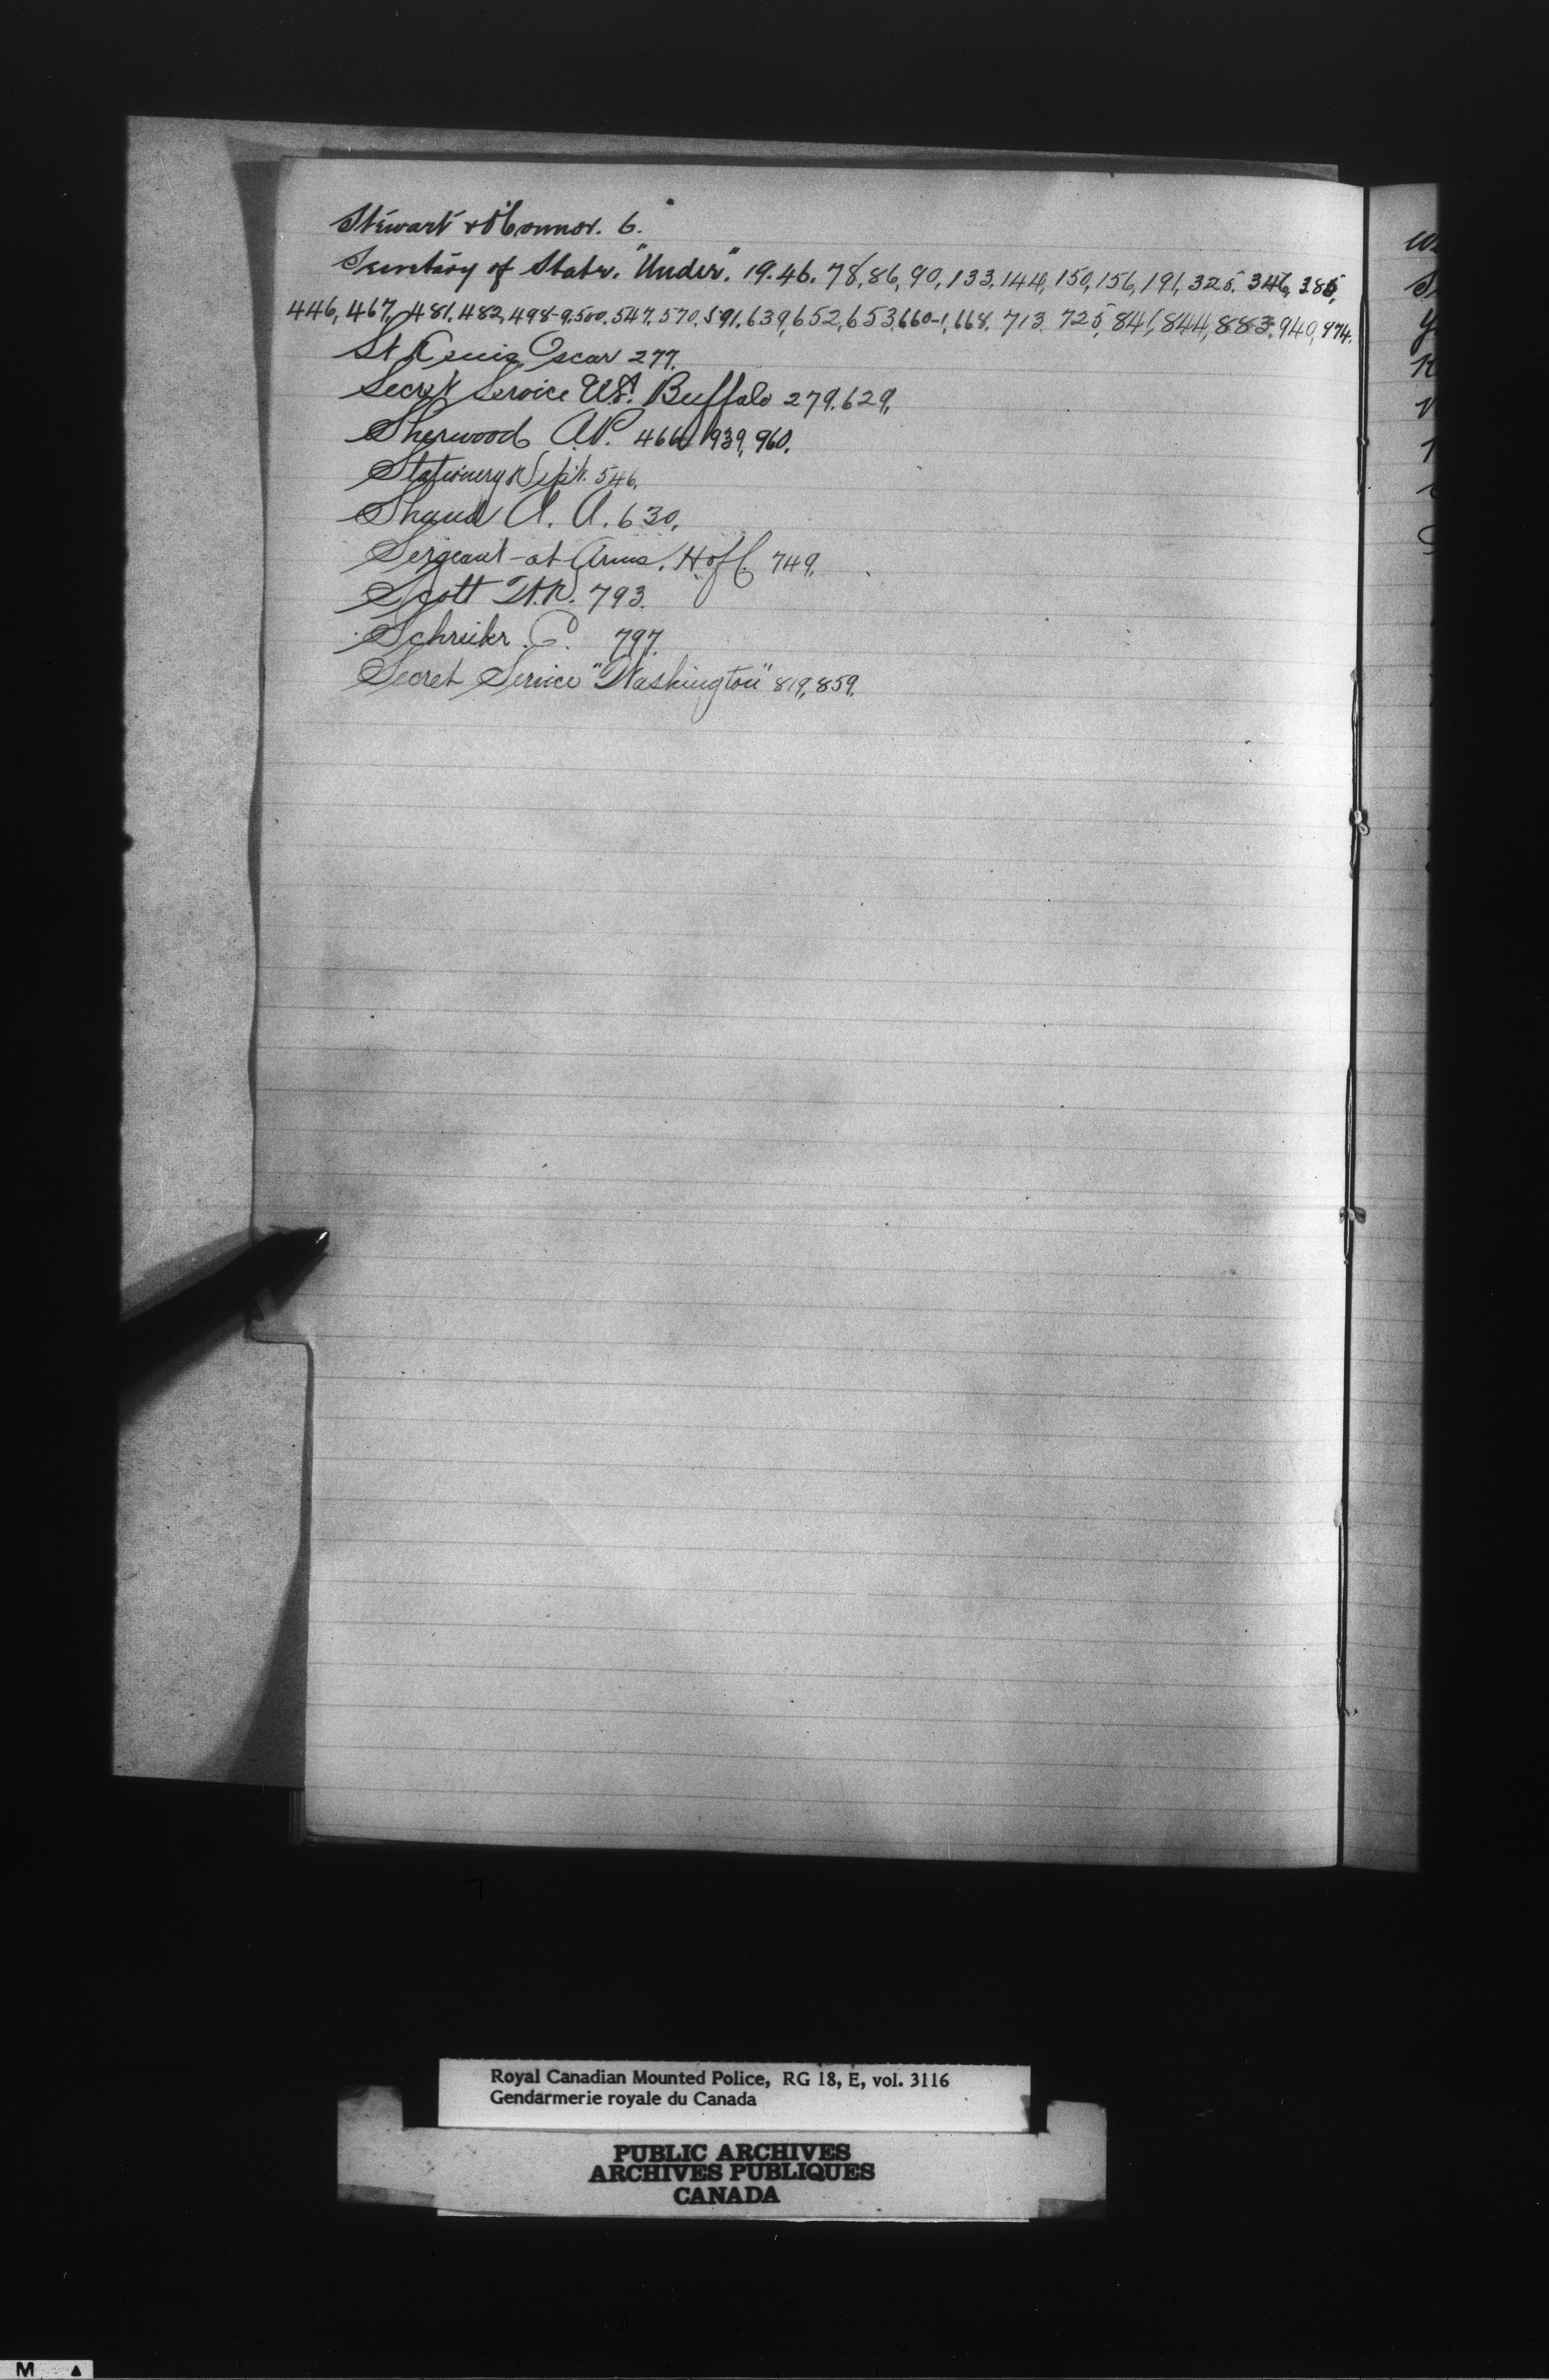 Stewart & O'Connor. 6.
Secretary of State. "Under". 19. 46. 78, 86, 90, 133, 144, 150, 156, 191, 325, 346, 385,
446, 467, 481, 482, 498-9, 500, 547, 570, 591, 639, 652, 653, 660-1, 668, 713 725, 841, 844, 883, 940, 974.
St Denis Oscar 277.
Secret Service U.S. Buffalo 279, 629,
Sherwood A.P. 466 939, 960.
Stationery Dept. 546.
Shaud A. A. 630,
Sergeant-at-Arms. H of C. 749,
Scott 793.
Schreiber C. 797.
Secret Service "Washington" 819, 859.
Royal Canadian Mounted Police, RG 18, E, vol. 3116
Gendarmerie royale du Canada
PUBLIC ARCHIVES
ARCHIVES PUBLIQUES
CANADA
M